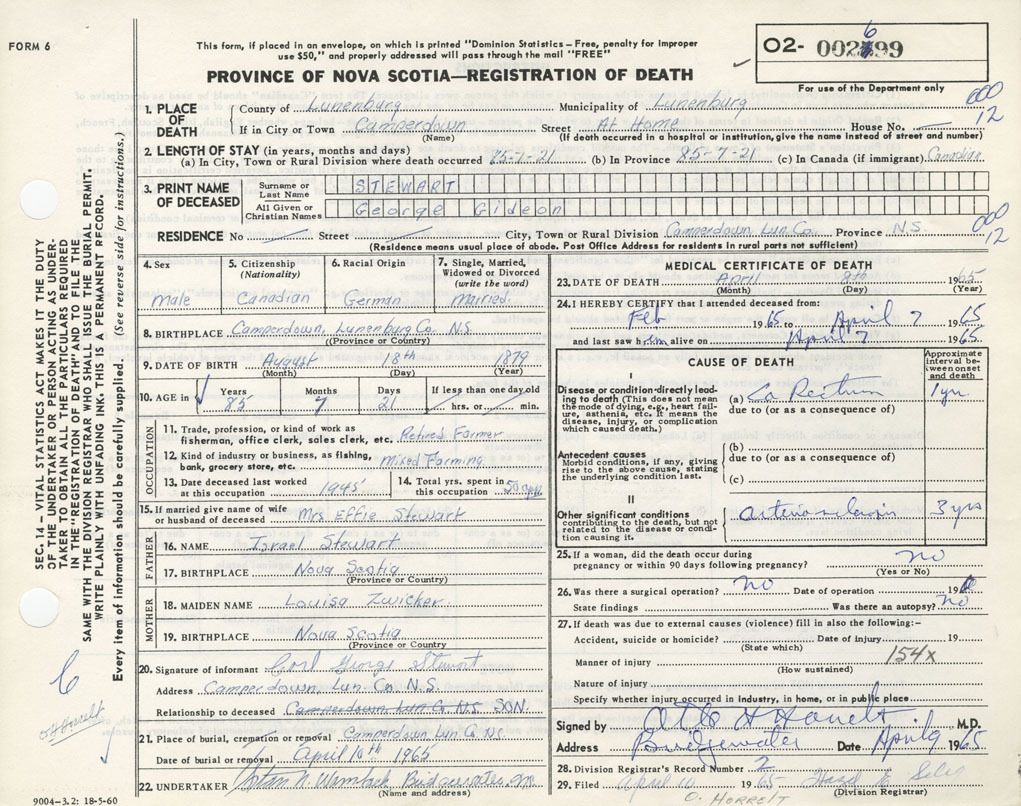 FORM 6
This form, if placed in an envelope, on which is printed "Dominion Statistics – Free, penalty for improper
use $50," and properly addressed will pass through the mail "FREE"
PROVINCE OF NOVA SCOTIA—REGISTRATION OF DEATH
O2- 002699
For use of the Department only
000
12
1. PLACE OF DEATH
County of Lunenburg Municipality of Lunenburg
If in City or Town Camperdown Street At Home House No.
(Name) (If death occurred in a hospital or institution, give the name instead of street and number)
2. LENGTH OF STAY (in years, months and days)
(a) In City, Town or Rural Division where death occurred 85-7-21 (b) In Province 85-7-21 (c) In Canada (if immigrant) Canadian
3. PRINT NAME OF DECEASED
Surname or Last Name STEWART
All Given or Christian Names George Gideon
RESIDENCE No Street City, Town or Rural Division Camperdown Lun Co. Province N.S.
000
12
(Residence means usual place of abode. Post Office Address for residents in rural parts not sufficient)
4. Sex
Male
5. Citizenship (Nationality)
Canadian
6. Racial Origin
German
7. Single, Married, Widowed or Divorced (write the word)
Married
8. BIRTHPLACE Camperdown, Lunenburg Co. N.S.
(Province or Country)
9. DATE OF BIRTH August 18th 1879
(Month) (Day) (Year)
10. AGE in
Years Months Days If less than one day old
85 7 21 hrs. or min.
OCCUPATION
11. Trade, profession, or kind of work as
fisherman, office clerk, sales clerk, etc. Retired Farmer
12. Kind of industry or business, as fishing,
bank, grocery store, etc. Mixed Farming
13. Date deceased last worked
at this occupation 1945
14. Total yrs. spent in
this occupation 50
15. If married give name of wife
or husband of deceased Mrs Effie Stewart
FATHER
16. NAME Israel Stewart
17. BIRTHPLACE Nova Scotia
(Province or Country)
MOTHER
18. MAIDEN NAME Louisa Zwicker
19. BIRTHPLACE Nova Scotia
(Province or Country
20. Signature of informant George Stewart
Address Camperdown, Lun. Co. N.S.
Relationship to deceased Camperdown Lun Co N.S. SON
21. Place of burial, cremation or removal Camperdown Lun Co N.S.
Date of burial or removal April 10th 1965
22. UNDERTAKER
(Name and address)
9004-3.2: 18-5-60
MEDICAL CERTIFICATE OF DEATH
23. DATE OF DEATH April 8th 1965
(Month) (Day) (Year)
24. I HEREBY CERTIFY that I attended deceased from:
Feb 1965 to April 7 1965
and last saw him alive on April 7 1965
CAUSE OF DEATH
Approximate interval between onset and death
I
Disease or condition directly leading to death (This does not mean the mode of dying, e.g., heart failure, asthenia, etc. It means the disease, injury, or complication which caused death.)
(a) Ca Rectum 1 yr
due to (or as a consequence of)
Antecedent causes
Morbid conditions, if any, giving rise to the above cause, stating the underlying condition last.
(b)
due to (or as a consequence of)
(c)
II
Other significant conditions
contributing to the death, but not related to the disease or condition causing it.
3 yrs
25. If a woman, did the death occur during
pregnancy or within 90 days following pregnancy? no
(Yes or No)
26. Was there a surgical operation? no Date of operation 19
State findings Was there an autopsy? no
27. If death was due to external causes (violence) fill in also the following:–
Accident, suicide or homicide? Date of injury 19
(State which)
154x
Manner of injury
(How sustained)
Nature of injury
Specify whether injury occurred in industry, in home, or in public place
Signed by M.D.
Address Bridgewater Date April 9 1965
28. Division Registrar's Record Number 2
29. Filed April 10 1965
(Division Registrar)
SEC. 14 – VITAL STATISTICS ACT MAKES IT THE DUTY
OF THE UNDERTAKER OR PERSON ACTING AS UNDER-
TAKER TO OBTAIN ALL THE PARTICULARS REQUIRED
IN THE "REGISTRATION OF DEATH" AND TO FILE THE
SAME WITH THE DIVISION REGISTRAR WHO SHALL ISSUE THE BURIAL PERMIT.
WRITE PLAINLY WITH UNFADING INK. THIS IS A PERMANENT RECORD.
Every item of information should be carefully supplied. (See reverse side for instructions.)
6